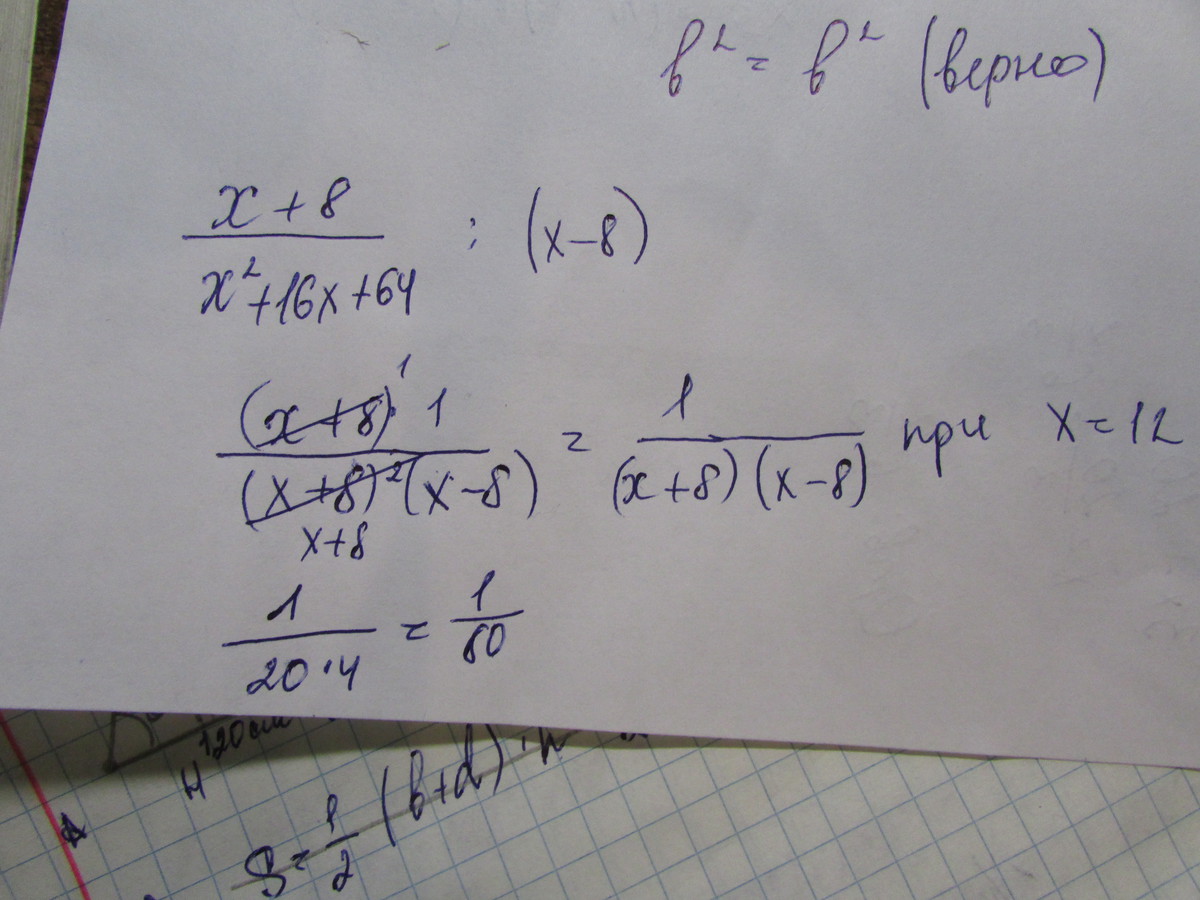 в² = в² (верно)
x + 8 / x² + 16x + 64 : (x - 8)
(x + 8) 1 · 1 / (x + 8)² (x - 8) x + 8 = 1 / (x + 8) (x - 8) при x = 12
1 / 20 · 4 = 1 / 80
120 см
H
S = 1 / 2 (b + d) · h